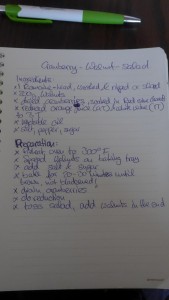 Cranberry - Walnut - Salad
Ingredients:
* 1 Romaine-head, washed, & ripped or sliced
* 200g walnuts
* dried cranberries, soaked in hot water
* reduced orange juice
* vegetable oil
* salt, pepper, sugar
Preparation:
* preheat oven to 300°F
* spread walnuts on baking tray
* add salt & sugar
* bake for 20-30 minutes until
brown, not blackened,
* drain cranberries
* do reduction
* toss salad, add walnuts in the end